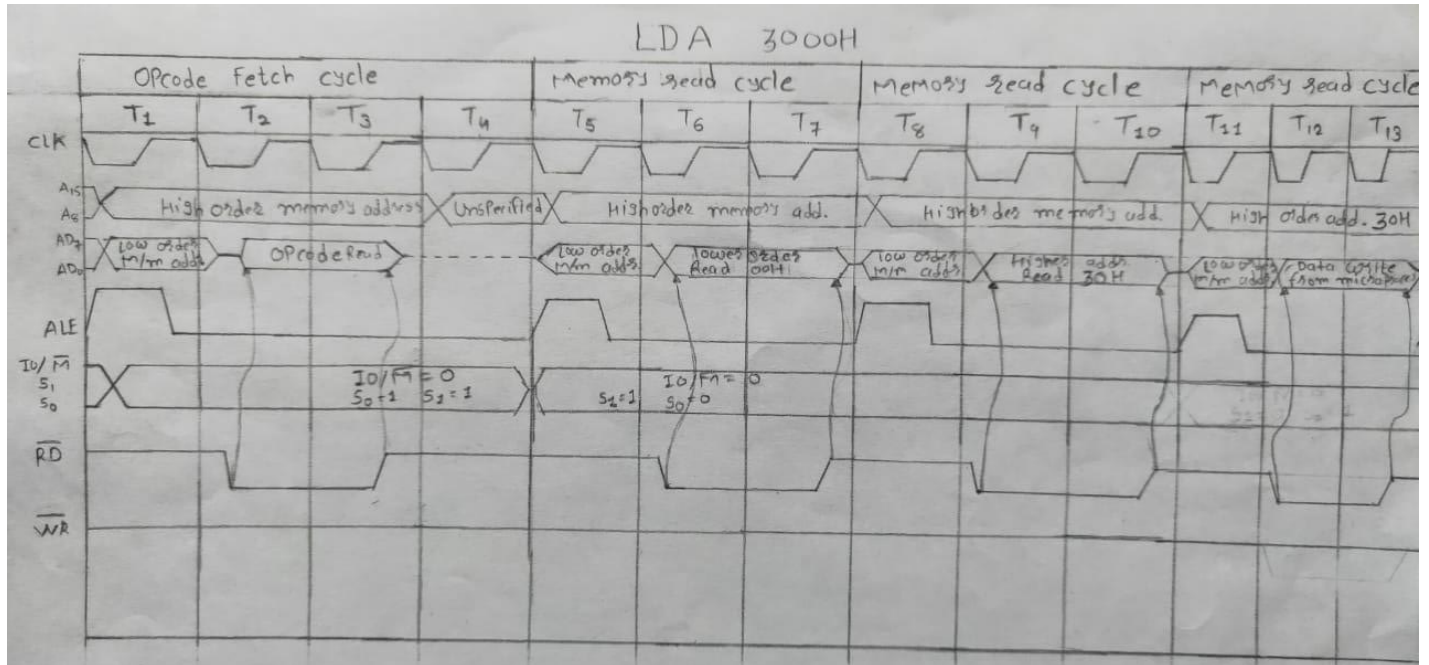 LDA 3000H
OPcode Fetch cycle Memory read cycle Memory read cycle Memory read cycle
T1 T2 T3 T4 T5 T6 T7 T8 T9 T10 T11 T12 T13
CLK
A15
A8
High order memory address Unspecified High order memory add. High order memory add. High order add. 30H
AD7
AD0
Low order m/m addr
OPcode Read
Low order m/m addr
lower order Read 00H
Low order m/m addr
Higher addr. Read 30H
Low order m/m addr
Data write from
ALE
IO/M̅
S1
S0
IO/M̅ = 0
S0=1 S1=1
IO/M̅ = 0
S1=1 S0=0
R̅D̅
W̅R̅